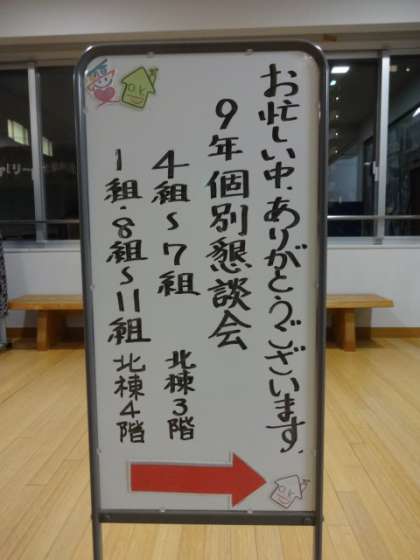 お忙しい中、ありがとうございます。
9年個別懇談会
4組~7組 北棟3階
1組・8組~11組 北棟4階
O.K
O.K